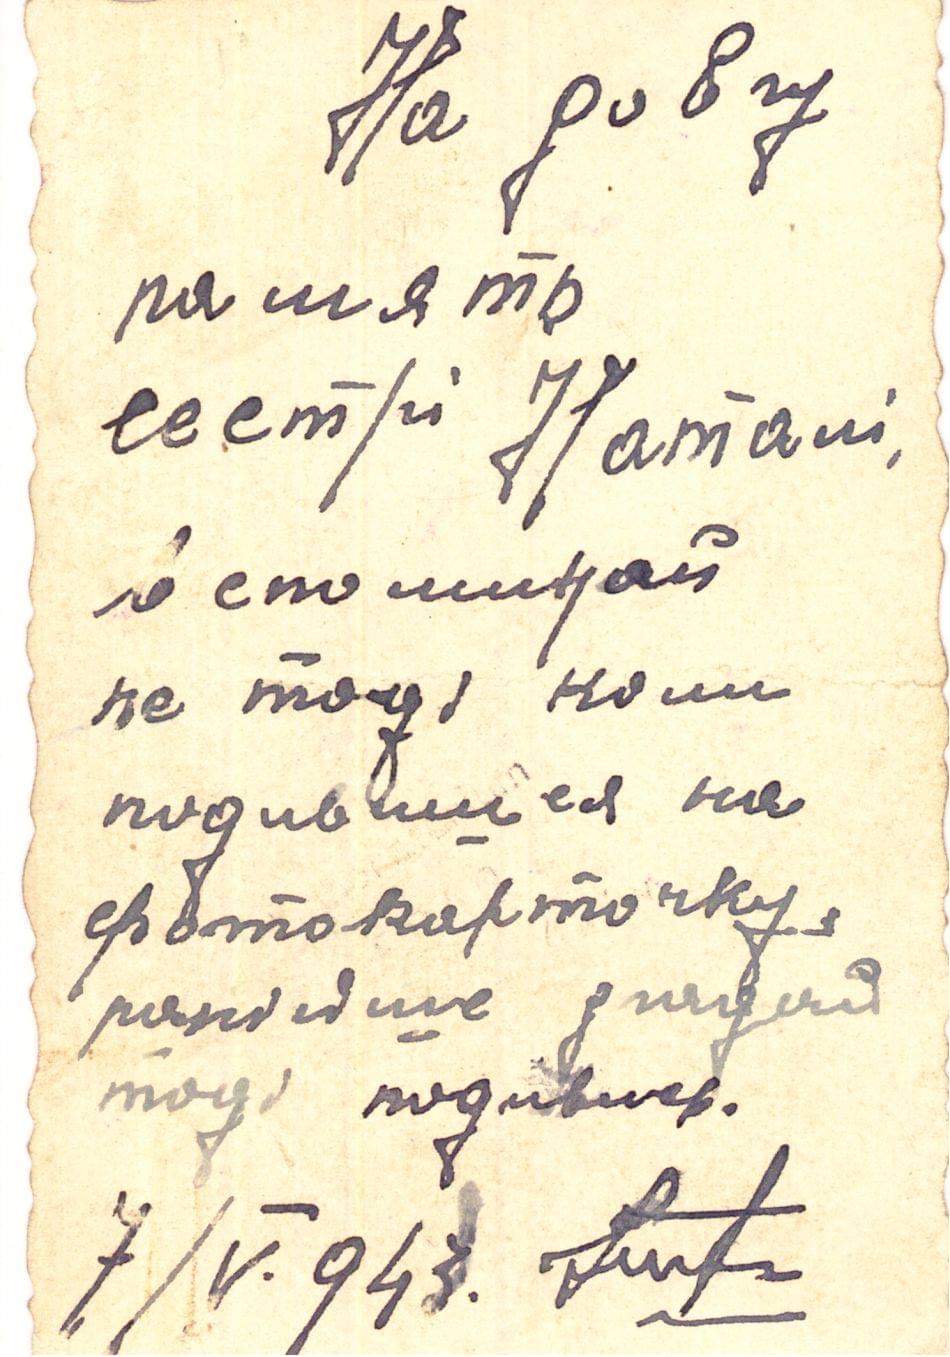 На довгу
память
сестрі Наталі,
вспоминай
не тоді коли
подивишся на
фотокарточку,
раніше згадай
тоді подивись.
7/V. 943.